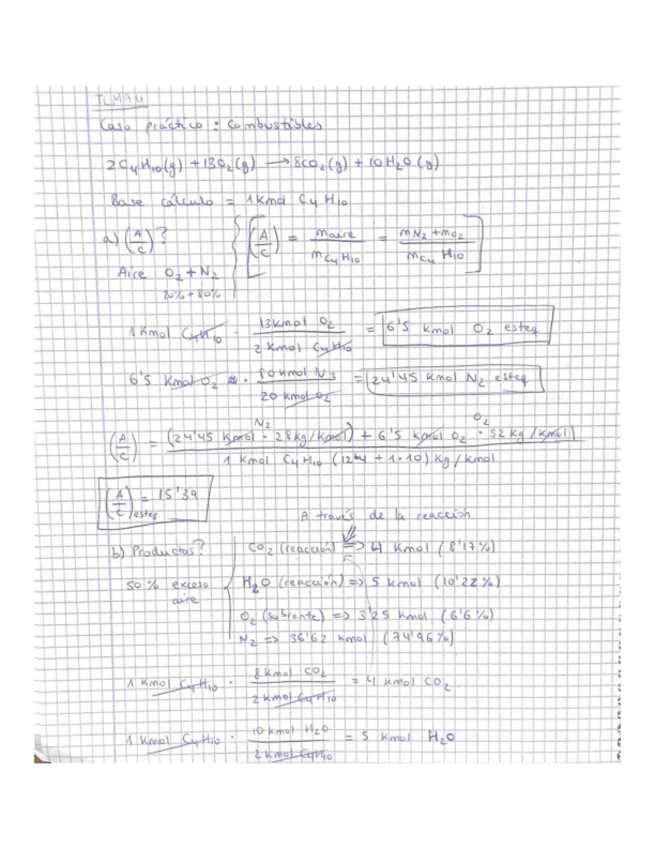 TEMA 4
Caso práctico : Combustibles
2C₄H₁₀(g) + 13O₂(g) → 8CO₂(g) + 10H₂O(g)
Base cálculo = 1 Kmol C₄H₁₀
a) (A/C)? { [(A/C) = m aire / m C₄H₁₀ = mN₂ + mO₂ / m C₄H₁₀]
Aire O₂ + N₂
20% + 80%
1 Kmol C₄H₁₀ · 13 Kmol O₂ / 2 Kmol C₄H₁₀ = 6'5 Kmol O₂ esteq
6'5 Kmol O₂ · 80 Kmol N₂ / 20 Kmol O₂ = 24'45 Kmol N₂ esteq
(A/C) = (24'45 Kmol N₂ · 28 Kg/Kmol) + 6'5 Kmol O₂ · 32 Kg/Kmol O₂ / 1 Kmol C₄H₁₀ (12·4 + 1·10) Kg/Kmol
(A/C)esteq = 15'39
A través de la reacción
b) Productos? { CO₂ (reacción) => 4 Kmol (8'17%)
50% exceso aire H₂O (reacción) => 5 Kmol (10'22%)
O₂ (sobrante) => 3'25 Kmol (6'6%)
N₂ => 36'62 Kmol (74'96%)
1 Kmol C₄H₁₀ · 8 Kmol CO₂ / 2 Kmol C₄H₁₀ = 4 Kmol CO₂
1 Kmol C₄H₁₀ · 10 Kmol H₂O / 2 Kmol C₄H₁₀ = 5 Kmol H₂O